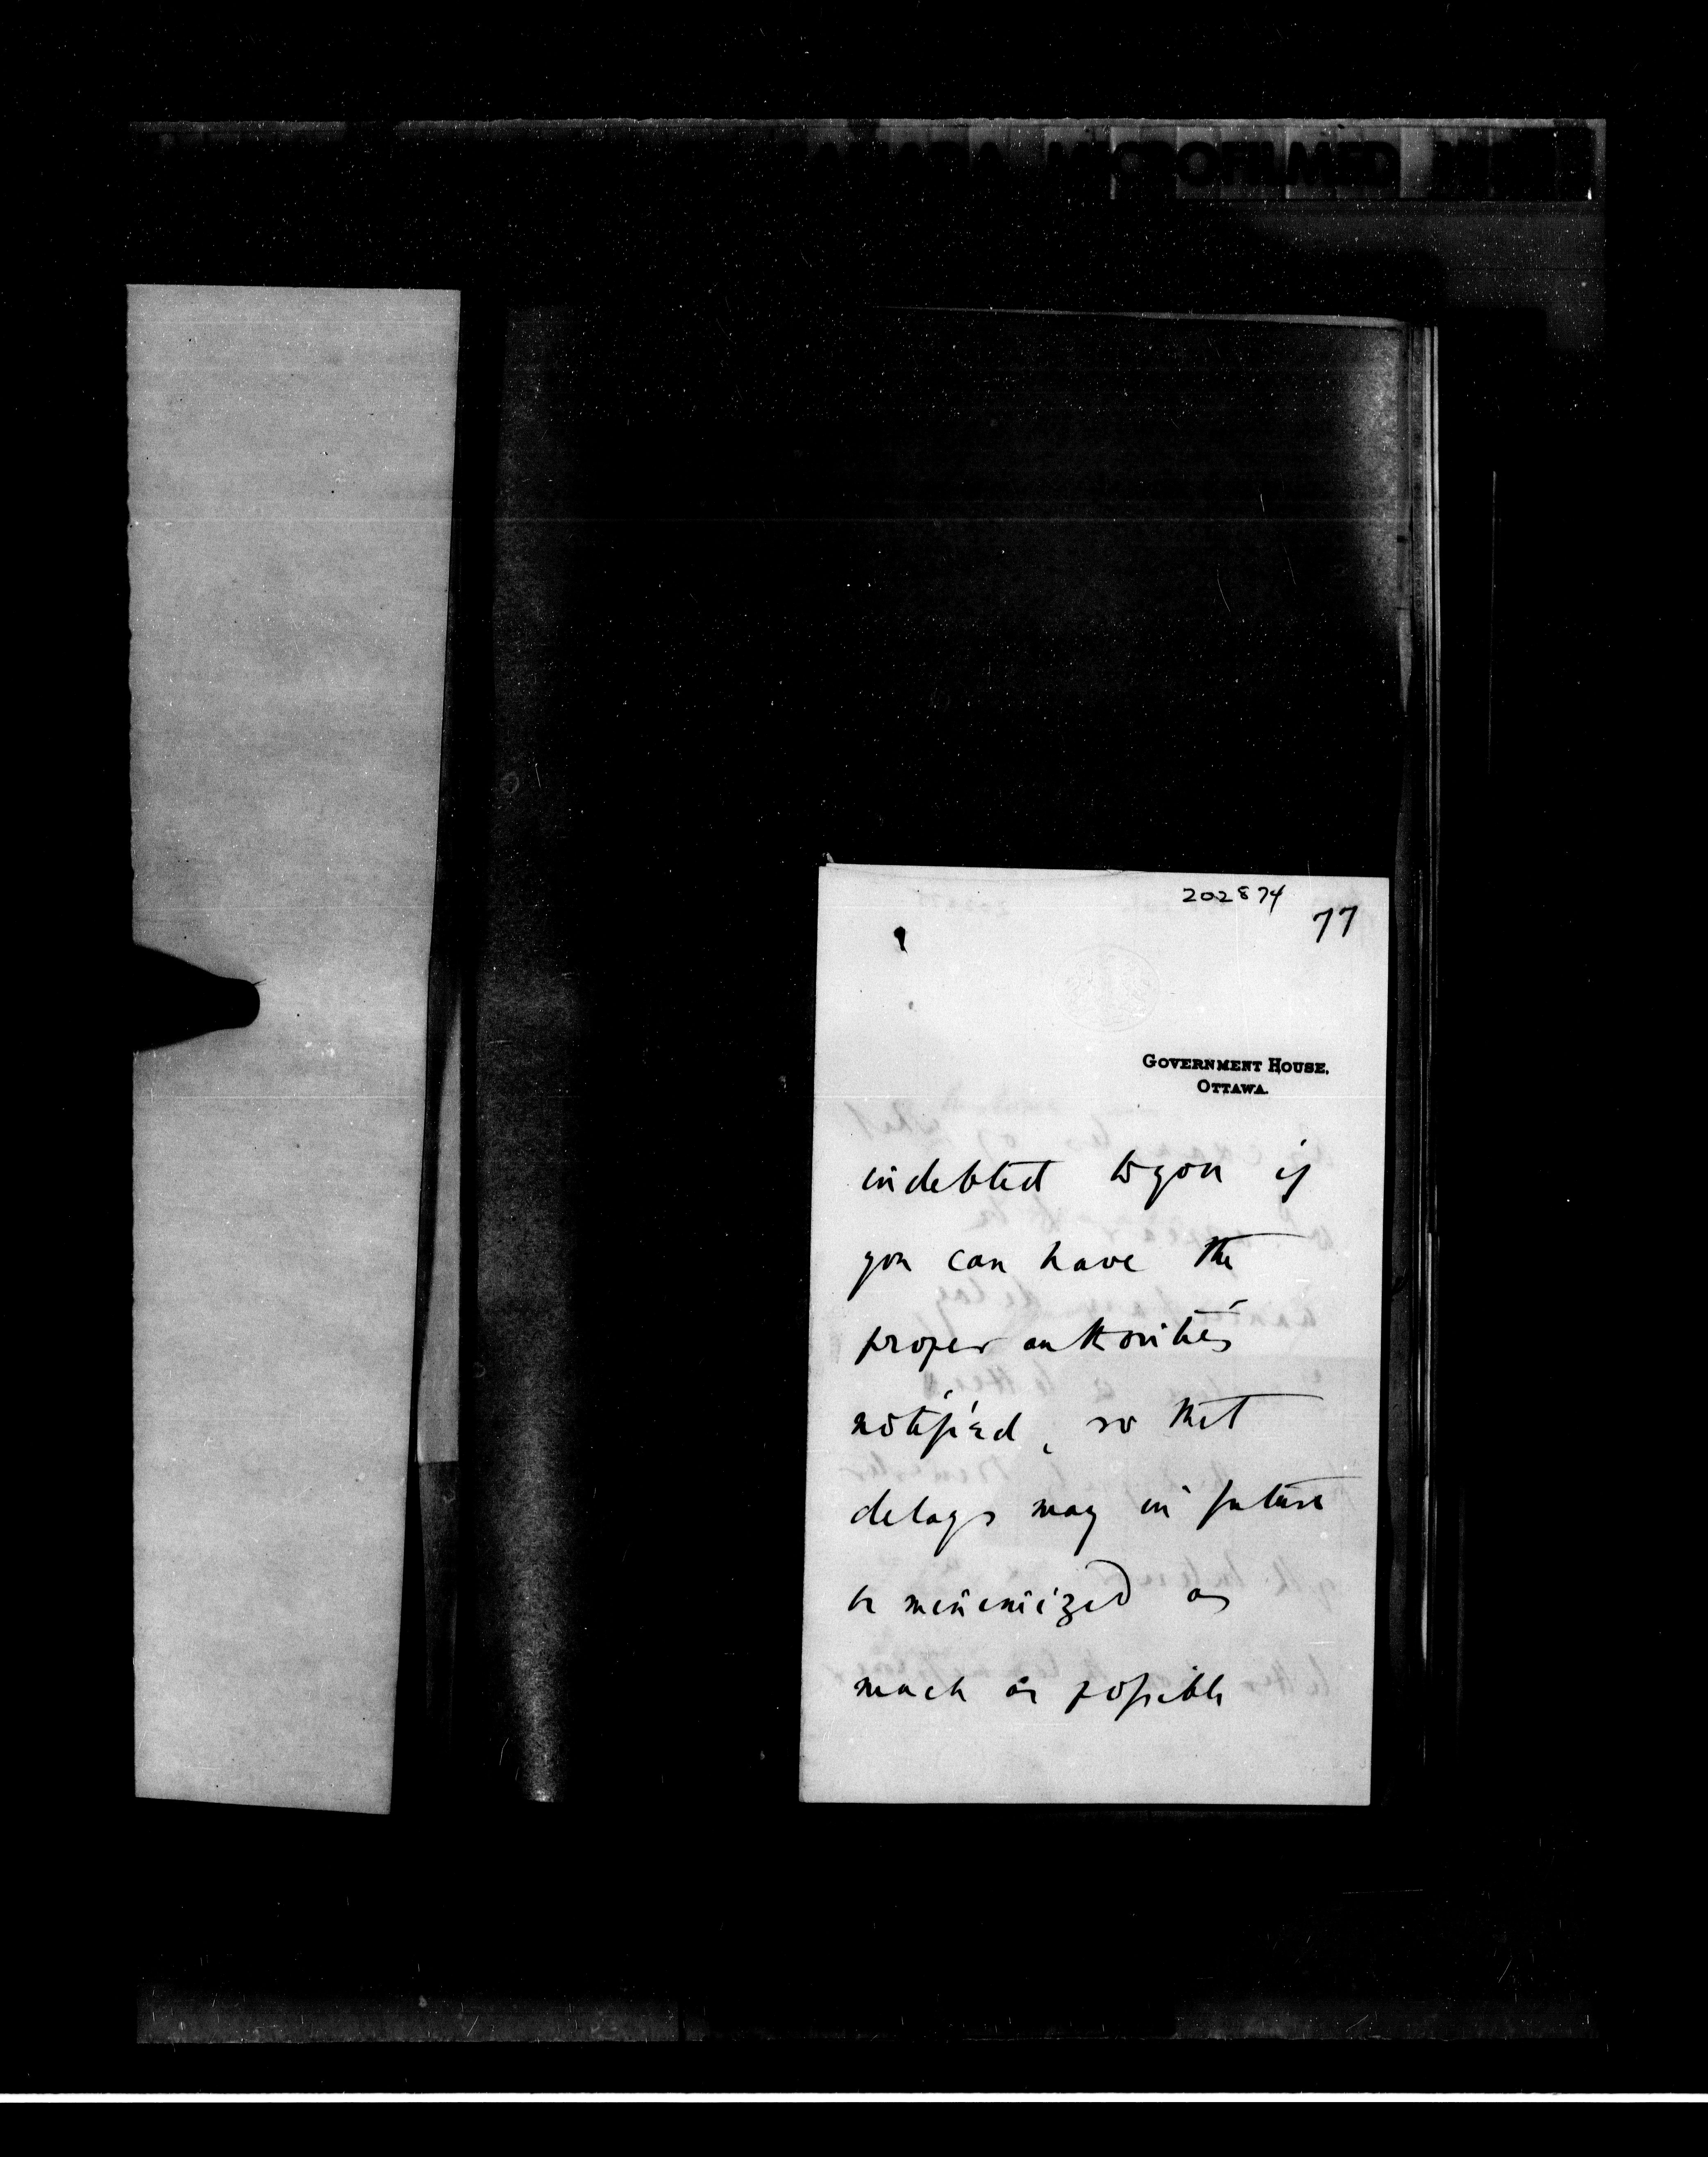 202874
77
GOVERNMENT HOUSE,
OTTAWA.
indebted to you if
you can have the
proper authorities
notified, so that
delays may in future
be minimized as
much as possible